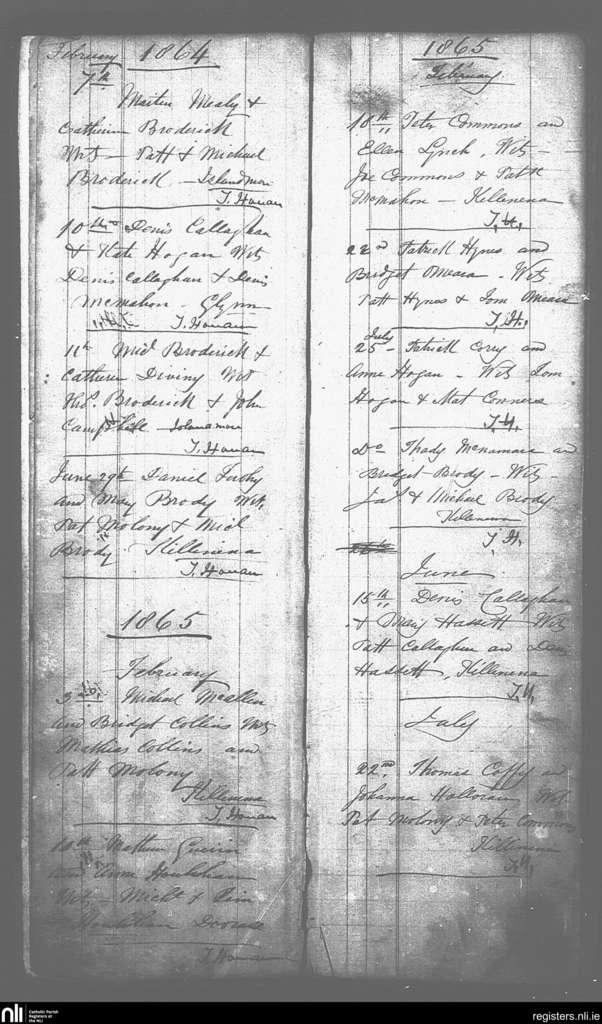 February 1864
7th
Martin Mealy &
Catherine Broderick
Wits - Patt & Michael
Broderick - Islandmore
T. Honan
10th Denis Callaghan
& Kate Hogan Wits
Denis Callaghan & Denis
McMahon - Glynn
T. Honan
11th Micl Broderick &
Catherine Diviny Wit
Thos. Broderick & John
Campbell Islandmore
T. Honan
June 29th Daniel
and Mary Brody Wits,
Pat Molony & Micl
Brody Killenena
T. Honan
1865
February
3rd Michael
and Bridget Collins Wits
Mathias Collins and
Patt Molony
Killenena
T. Honan
10th Mathew
and Anne Houlehan
Wits - Michl & Tim
Houlehan
T. Honan
1865
February
18th Peter Commons and
Ellen Lynch, Wits -
Joe Commons & Patk
McMahon - Killenena
T. H,
22nd Patrick Hynes and
Bridget Meara - Wits
Patt Hynes & Tom Meara
T. H.
July
25 - Patrick Corry and
Anne Hogan - Wits Tom
Hogan & Mat Conners
T. H.
Do Thady McNamara and
Bridget Brody - Wits -
Jas & Michael Brody
Killenena
T. H.
June
15th Denis Callaghan
& Mary Hassett Wits
Patt Callaghan and
Hassett, Killenena
T. H,
July
22nd, Thomas Coffy and
Johanna Halloran Wits
Pat Molony & Peter Commons
Killenena
T. H,
nli Catholic Parish
Registers at
the NLI
registers.nli.ie